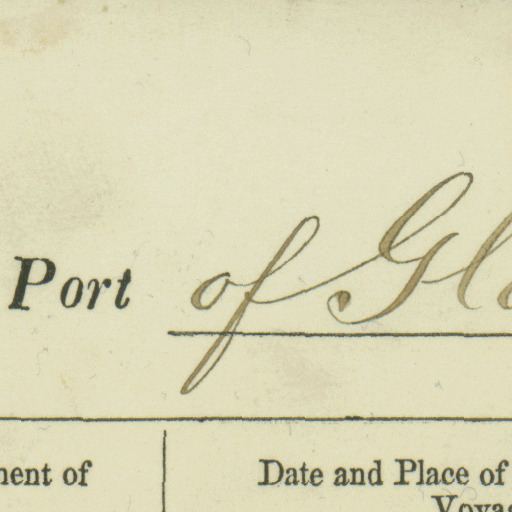 Port of Gl
ment of Date and Place of
Voyag